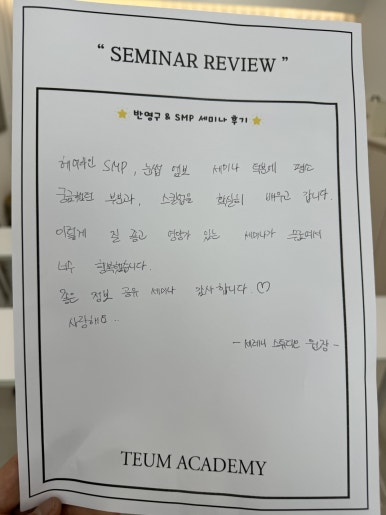 “ SEMINAR REVIEW ”
⭐ 반영구 & SMP 세미나 후기 ⭐
헤어라인 SMP, 눈썹 엠보 세미나 덕분에 평소
궁금했던 부분과, 스킬업을 확실히 배우고 갑니다.
이렇게 질 좋고 영양가 있는 세미나가
너무 행복했습니다.
좋은 정보 공유 세미나 감사합니다 ♡
사랑해요..
- 세레니 스튜디오 원장 -
TEUM ACADEMY